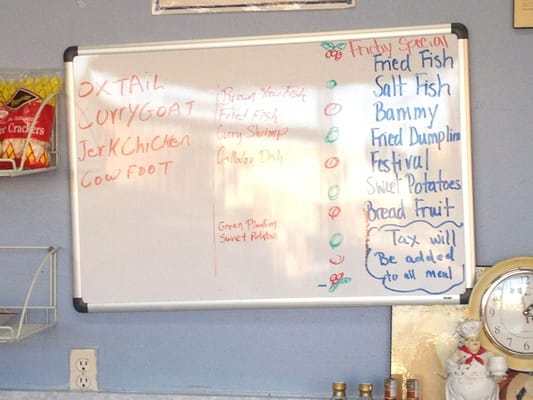 OXTAIL
CURRY GOAT
JERK CHICKEN
COW FOOT
Brown Stew Fish
Fried Fish
Curry Shrimp
Callaloo Dish
Green Plantins
Sweet Potatoe
Friday Special
Fried Fish
Salt Fish
Bammy
Fried Dumplin
Festival
Sweet Potatoes
Bread Fruit
Tax will
Be added
to all meal
Crackers